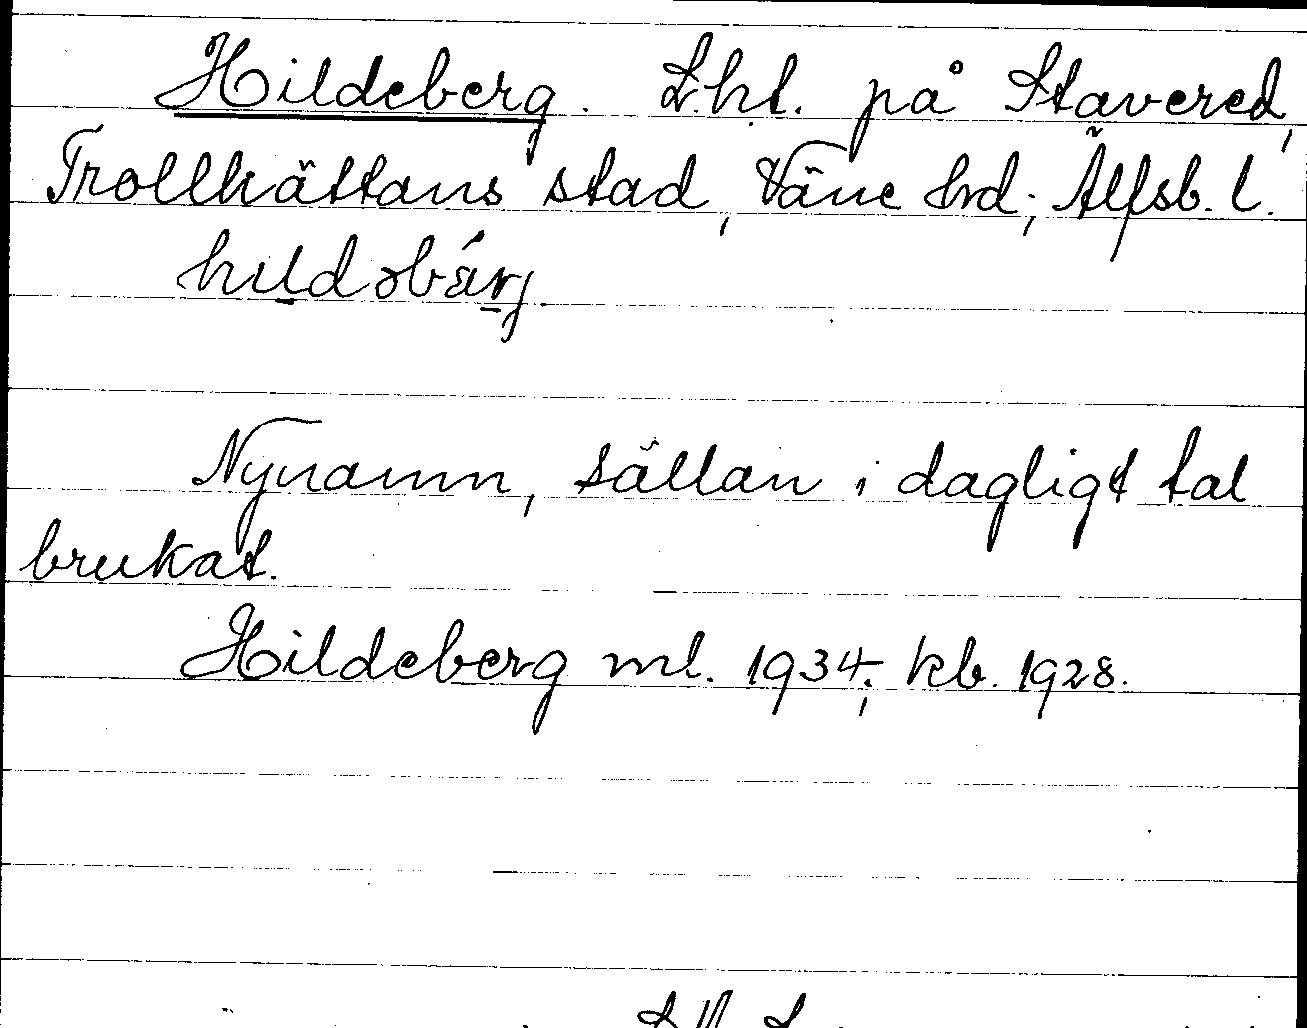 Hildeberg. L.ht. på Stavered,
Trollhättans stad, Väne hd; Älfsb. l.
Nynamn, sällan i dagligt tal
brukat.
Hildeberg ml. 1934; kb. 1928.